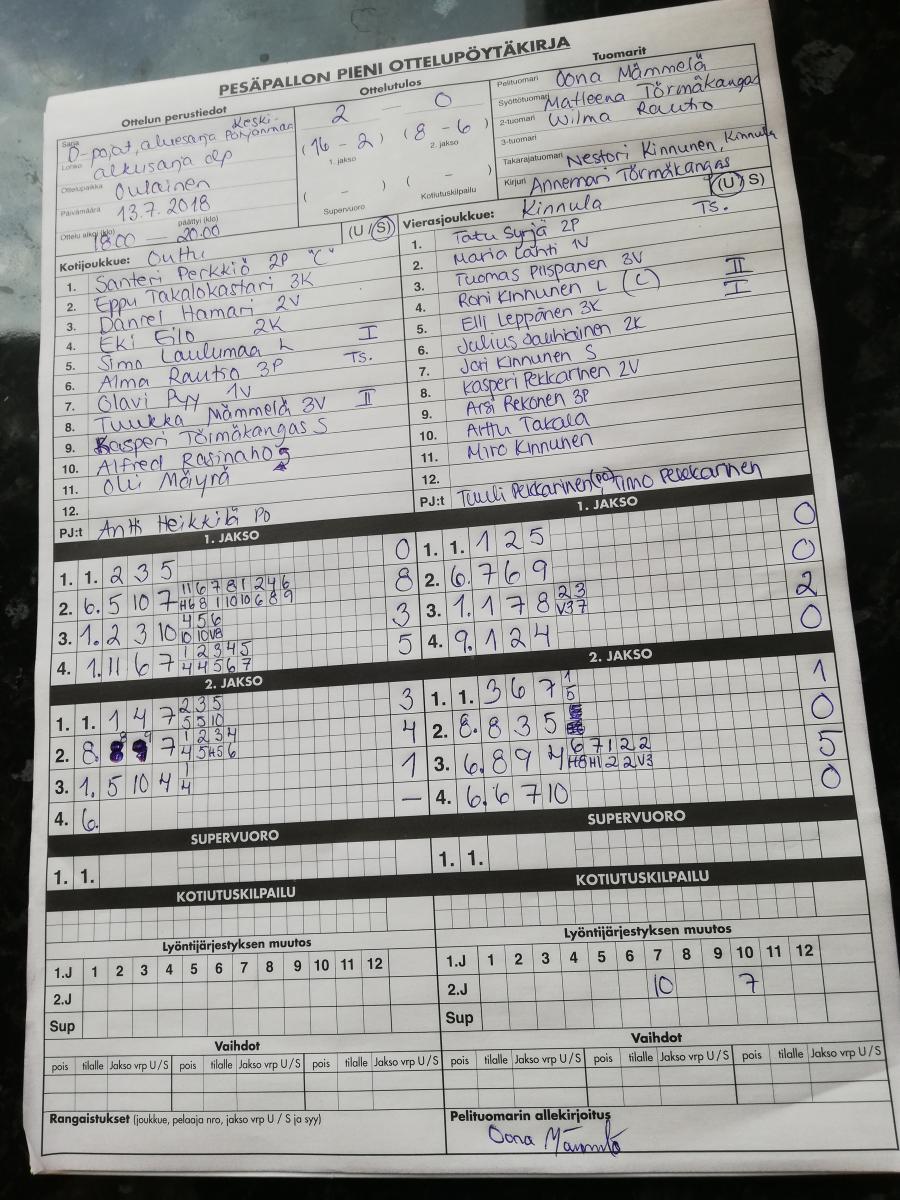 PESÄPALLON PIENI OTTELUPÖYTÄKIRJA
Ottelun perustiedot
Sarja D-pojat, aluesarja Keski-Pohjanmaa
Lohko alkusarja
Ottelupaikka Oulainen
Päivämäärä 13.7.2018
Ottelu alkoi (klo) 18.00 päättyi (klo) 20.00
Ottelutulos
2 — 0
(16 - 2) (8 - 6)
1. jakso 2. jakso
( - ) ( - )
Supervuoro Kotiutuskilpailu
Tuomarit
Pelituomari Oona Mämmelä
Syöttötuomari Matleena Törmäkangas
2-tuomari Wilma Rautio
3-tuomari
Takarajatuomari Nestori Kinnunen, Kinnula
Kirjuri Annemari Törmäkangas
Kotijoukkue: Outtu (U / S)
1. Santeri Perkkiö 2P "C"
2. Eppu Takalokastari 3K
3. Daniel Hamari 2V
4. Eki Eilo 2K
5. Simo Laulumaa L I
6. Alma Rautio 3P Ts.
7. Olavi Pyy 1V
8. Tuukka Mämmelä 3V II
9. Kasperi Törmäkangas S
10. Alfred Rasinaho
11. Olli Mäyrä
12.
PJ:t Antti Heikkilä PO
Vierasjoukkue: Kinnula (U / S)
1. Tatu Syrjä 2P Ts.
2. Maria Lahti 1V
3. Tuomas Piispanen 3V
4. Roni Kinnunen L (C) II
5. Elli Leppänen 3K I
6. Julius Jauhiainen 2K
7. Jori Kinnunen S
8. Kasperi Pekkarinen 2V
9. Arsi Rekonen 3P
10. Arttu Takala
11. Miro Kinnunen
12.
PJ:t Tuuli Pekkarinen (po), Timo Pekkarinen
1. JAKSO
1. 1. 2 3 5 0
2. 6. 5 10 7 8
3. 1. 2 3 10 4 5 6 10 10 V8 3
4. 1. 11 6 7 1 2 3 4 5 4 4 5 6 7 5
1. JAKSO
1. 1. 1 2 5 0
2. 6. 7 6 9 0
3. 1. 1 7 8 2 3 V3 7 2
4. 9. 1 2 4 0
2. JAKSO
1. 1. 1 4 7 2 3 5 5 5 10 3
2. 8. 8 9 7 1 2 3 4 4 5 H5 6 4
3. 1. 5 10 4 1 4 1
4. 6. —
2. JAKSO
1. 1. 3 6 7 1 5 1
2. 8. 8 3 5 0
3. 6. 8 9 4 6 7 1 2 2 H8 H1 2 2 V3 5
4. 6. 6 7 10 0
SUPERVUORO
1. 1.
SUPERVUORO
1. 1.
KOTIUTUSKILPAILU
KOTIUTUSKILPAILU
Lyöntijärjestyksen muutos
1.J 1 2 3 4 5 6 7 8 9 10 11 12
2.J
Sup
Lyöntijärjestyksen muutos
1.J 1 2 3 4 5 6 7 8 9 10 11 12
2.J 10 7
Sup
Vaihdot
pois tilalle Jakso vrp U / S pois tilalle Jakso vrp U / S pois tilalle Jakso vrp U / S
Vaihdot
pois tilalle Jakso vrp U / S pois tilalle Jakso vrp U / S pois tilalle Jakso vrp U / S
Rangaistukset (joukkue, pelaaja nro, jakso vrp U / S ja syy)
Pelituomarin allekirjoitus
Oona Mämmelä